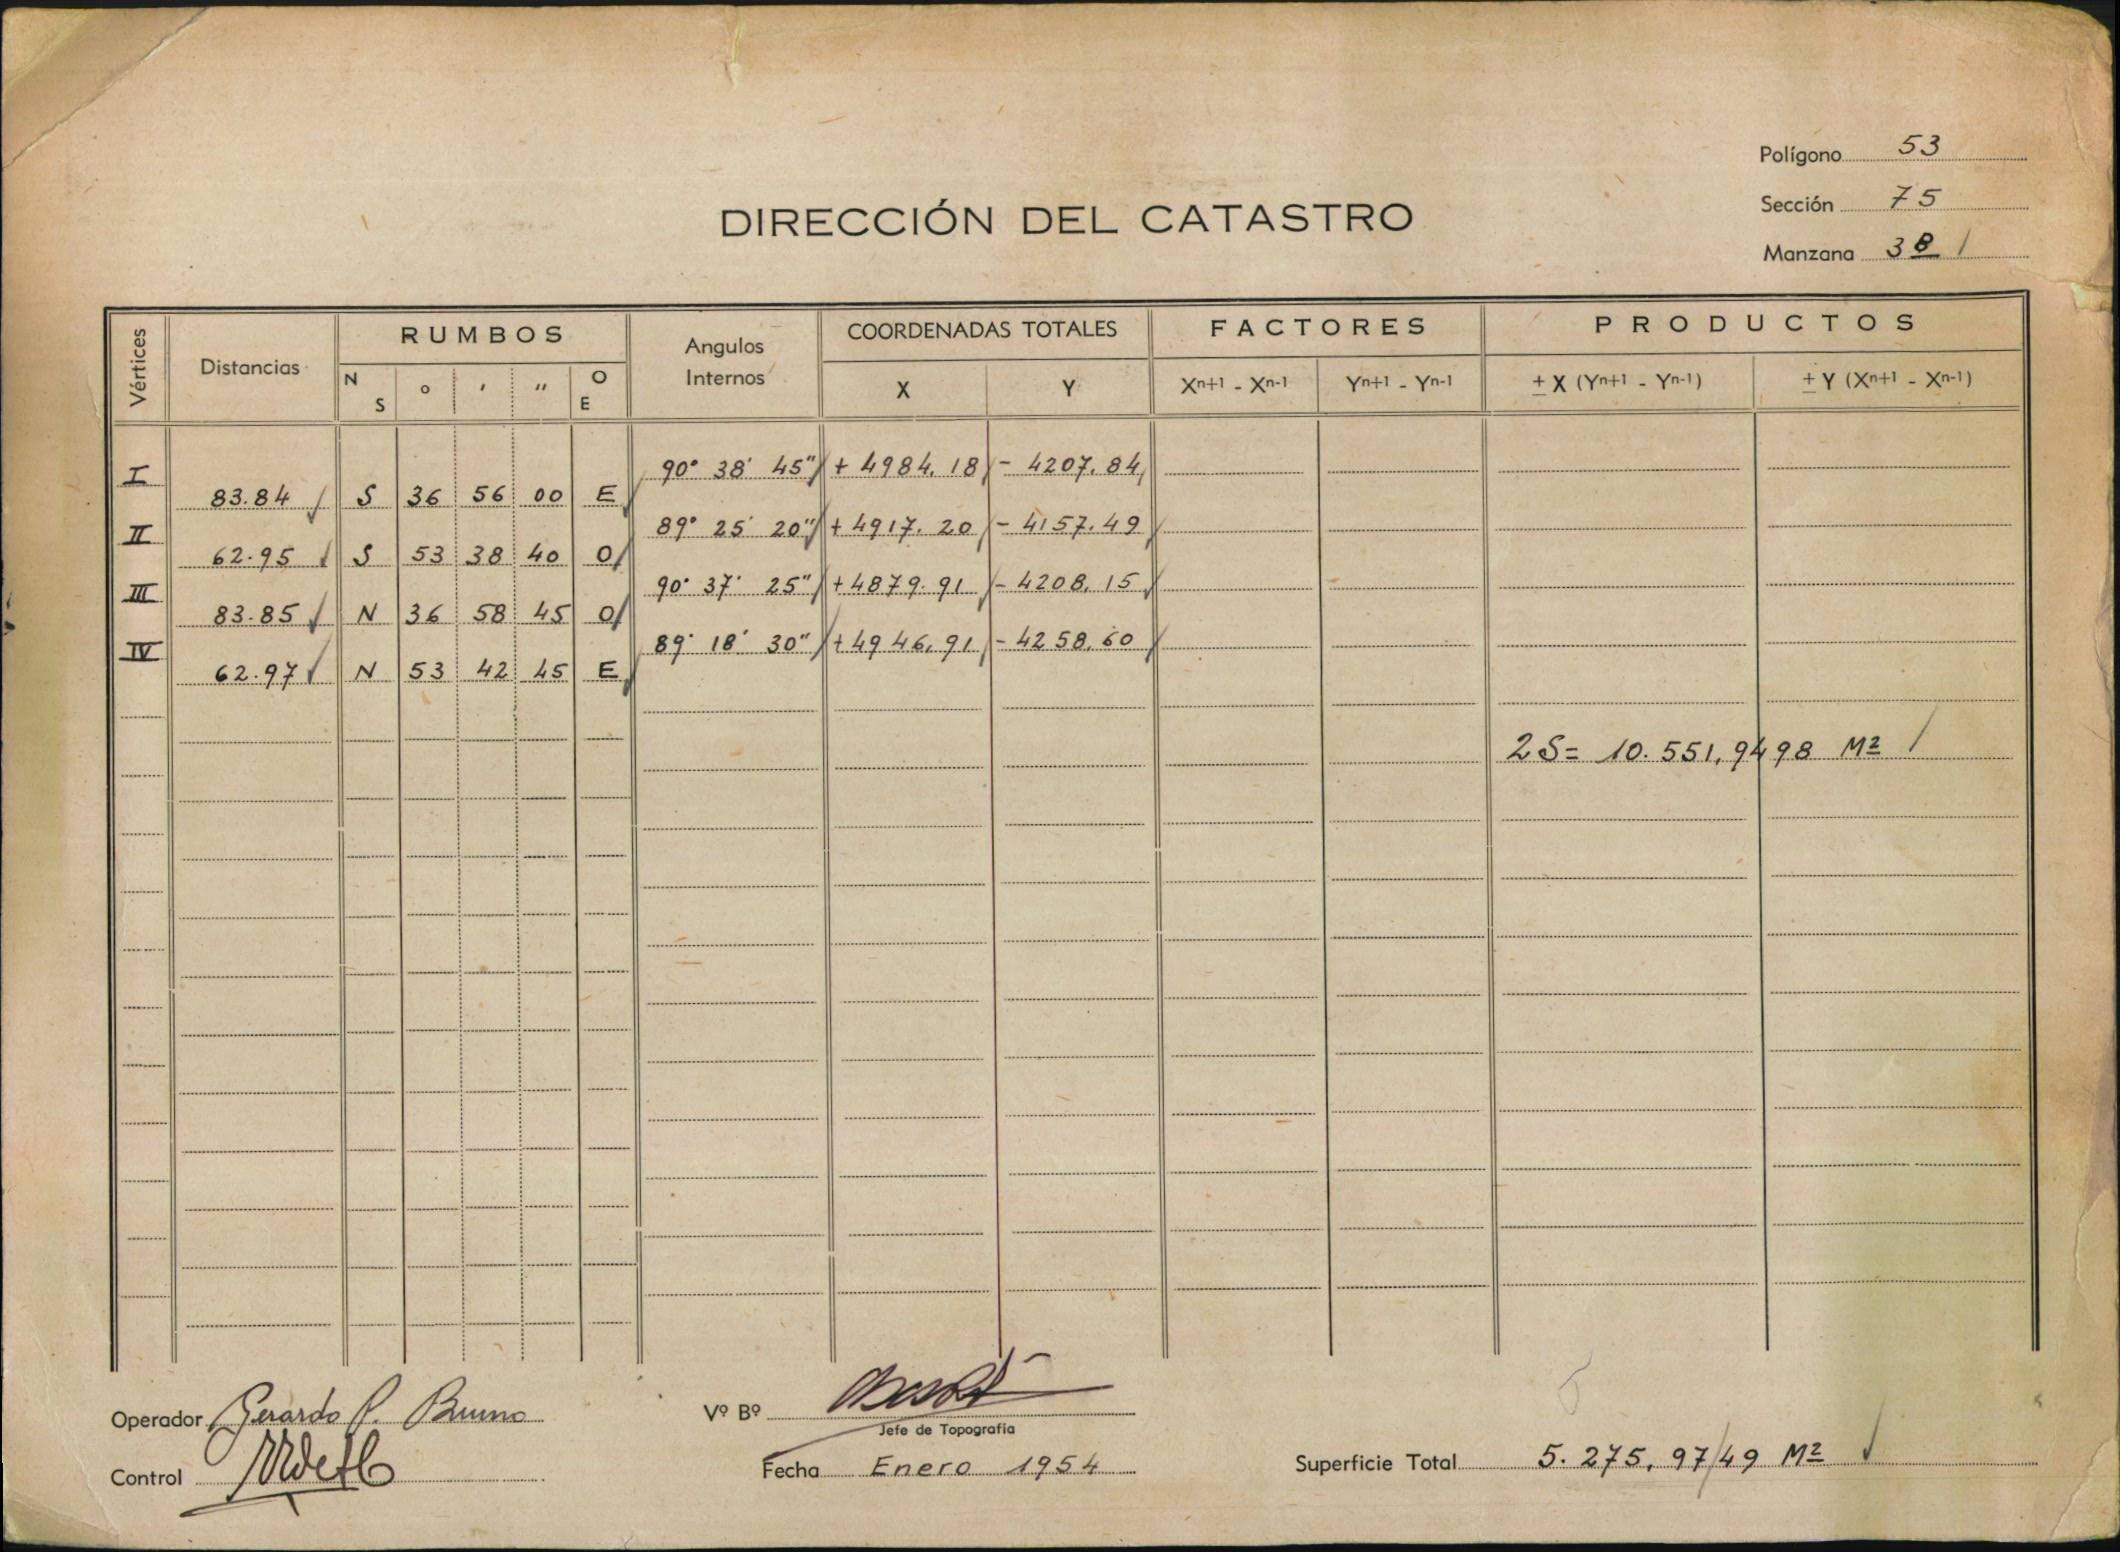 Polígono 53
Sección 75
DIRECCIÓN DEL CATASTRO
Manzana 3 8 /
Vértices Distancias RUMBOS Angulos Internos COORDENADAS TOTALES FACTORES PRODUCTOS
N S ° ' " O E X Y Xn+1 - Xn-1 Yn+1 - Yn-1 ± X (Yn+1 - Yn-1) ± Y (Xn+1 - Xn-1)
I 90° 38' 45" + 4984.18 - 4207.84
83.84 S 36 56 00 E
II 89° 25' 20" + 4917.20 - 4157.49
62.95 S 53 38 40 O
III 90° 37' 25" + 4879.91 - 4208.15
83.85 N 36 58 45 O
IV 89° 18' 30" + 4946.91 - 4258.60
62.97 N 53 42 45 E
2S = 10.551,9498 M²
Operador Gerardo P. Bruno
Vº Bº
Jefe de Topografía
Control
Fecha Enero 1954
Superficie Total 5.275,97/49 M²